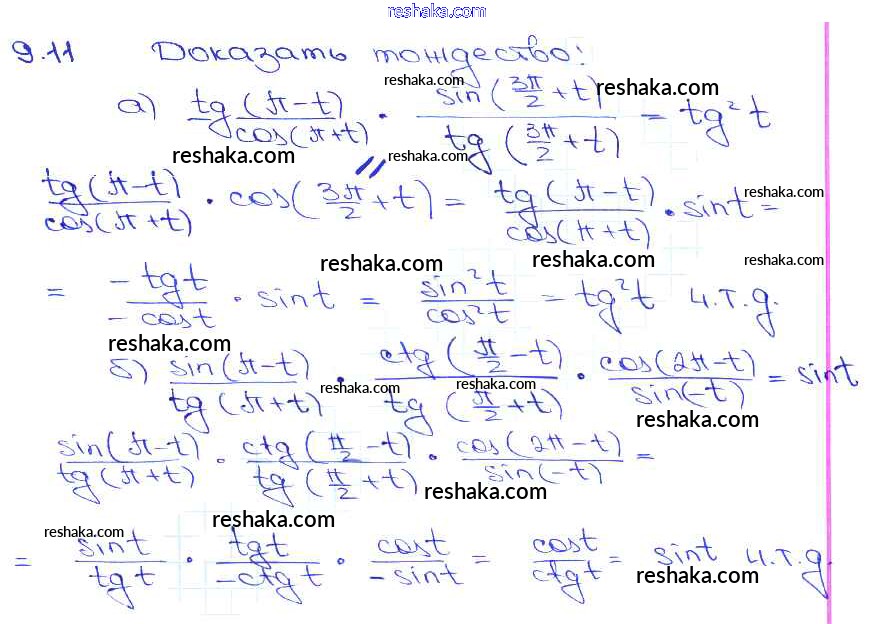 reshaka.com
9.11 Доказать тождество:
reshaka.com reshaka.com
а) tg(π-t)/cos(π+t) · sin(3π/2+t)/tg(3π/2+t) = tg²t
reshaka.com reshaka.com
tg(π-t)/cos(π+t) · cos(3π/2+t) = tg(π-t)/cos(π+t) · sint =
reshaka.com
reshaka.com reshaka.com reshaka.com
= -tgt/-cost · sint = sin²t/cos²t = tg²t ч.т.д.
reshaka.com
б) sin(π-t)/tg(π+t) · ctg(π/2-t)/tg(π/2+t) · cos(2π-t)/sin(-t) = sint
reshaka.com reshaka.com reshaka.com
sin(π-t)/tg(π+t) · ctg(π/2-t)/tg(π/2+t) · cos(2π-t)/sin(-t) =
reshaka.com
reshaka.com reshaka.com
= sint/tgt · tgt/-ctgt · cost/-sint = cost/ctgt = sint ч.т.д.
reshaka.com